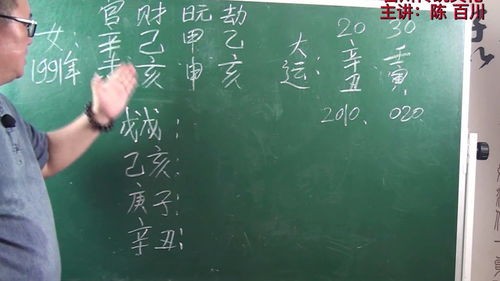 主讲：陈 百川
官 财 日元 劫
女: 辛 己 甲 乙
1991年 亥 申 亥
20 30
大运: 辛丑 壬寅
2010. 020
戊戌:
己亥:
庚子:
辛丑: